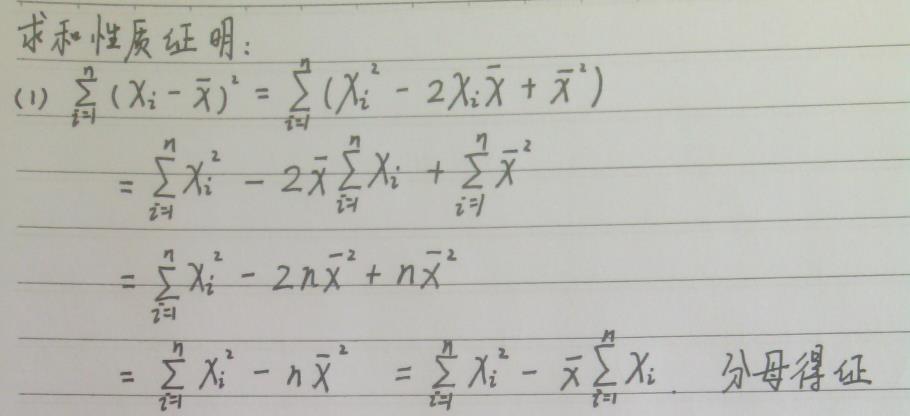 求和性质证明：
(1) $\sum_{i=1}^{n}(x_i - \bar{x})^2 = \sum_{i=1}^{n}(x_i^2 - 2x_i\bar{x} + \bar{x}^2)$
$= \sum_{i=1}^{n}x_i^2 - 2\bar{x}\sum_{i=1}^{n}x_i + \sum_{i=1}^{n}\bar{x}^2$
$= \sum_{i=1}^{n}x_i^2 - 2n\bar{x}^2 + n\bar{x}^2$
$= \sum_{i=1}^{n}x_i^2 - n\bar{x}^2 = \sum_{i=1}^{n}x_i^2 - \bar{x}\sum_{i=1}^{n}x_i$. 分母得证